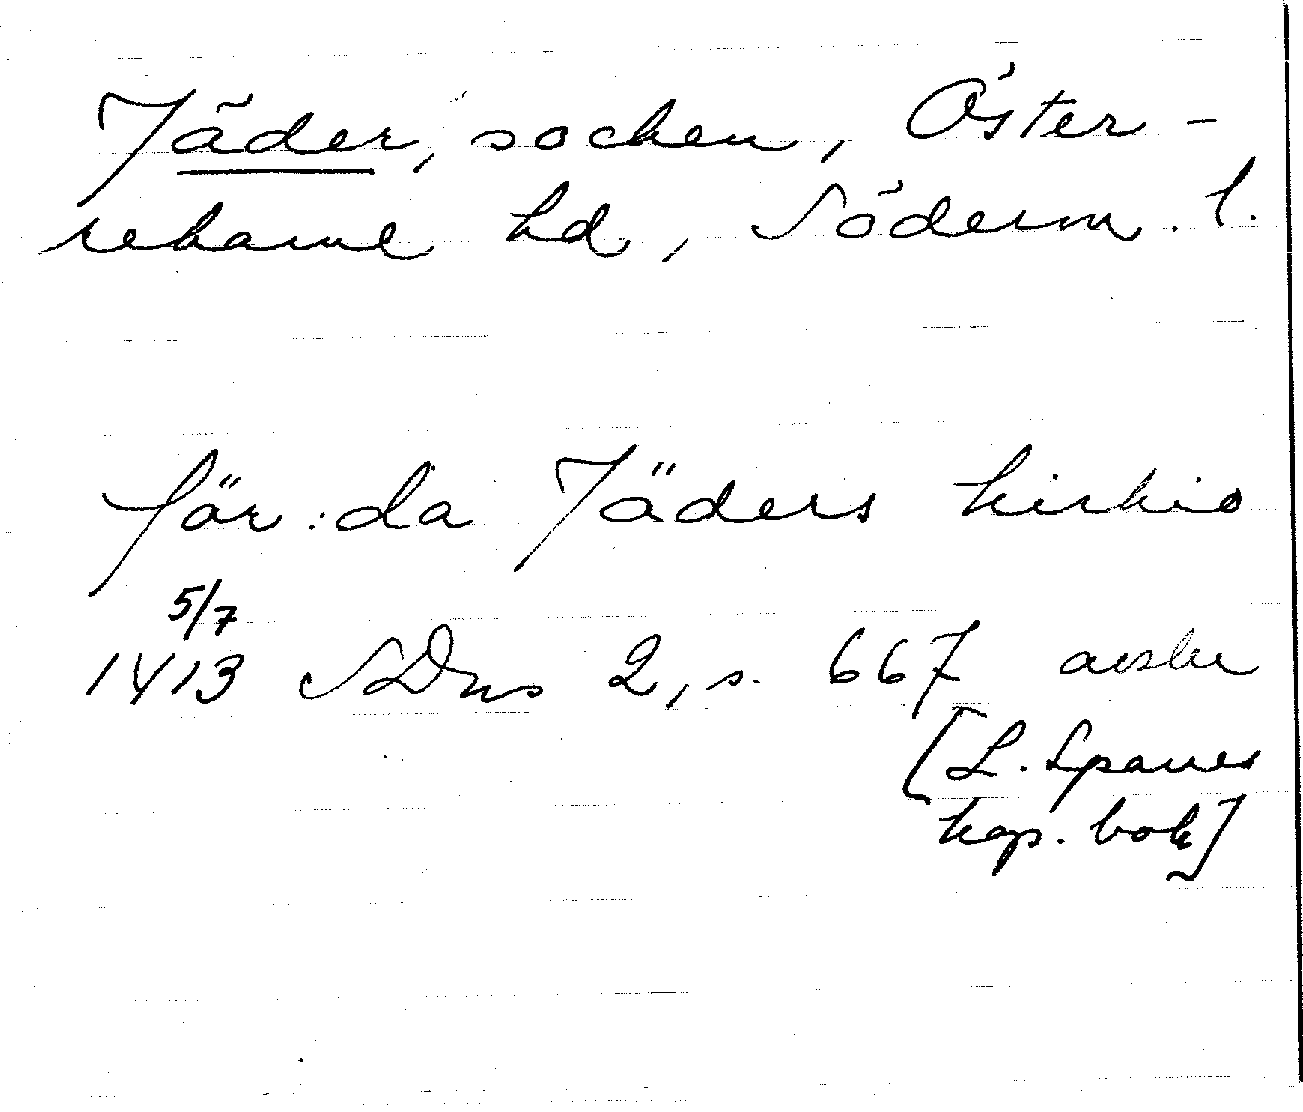 Jäder, socken, Öster-
rekarne hd, Söderm. l.
för:da Jäders kirkio
5/7
1413 SDns 2, s. 667 avskr
[L. Spanes
kop. bok]